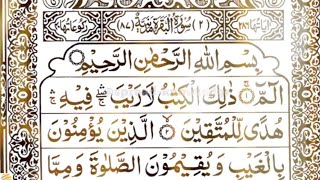 اٰیَاتُهَا ۲۸۶ (۲) سُوْرَةُ الْبَقَرَةِ مَدَنِيَّةٌ (۸۷) رُكُوْعَاتُهَا ۴۰
بِسْمِ اللّٰهِ الرَّحْمٰنِ الرَّحِيْمِ
الٓمّٓ ۚ ۱ ذٰلِكَ الْكِتٰبُ لَا رَيْبَ ۛۖ فِيْهِ ۛۚ
هُدًى لِّلْمُتَّقِيْنَ ۙ ۲ الَّذِيْنَ يُؤْمِنُوْنَ
بِالْغَيْبِ وَيُقِيْمُوْنَ الصَّلٰوةَ وَمِمَّا